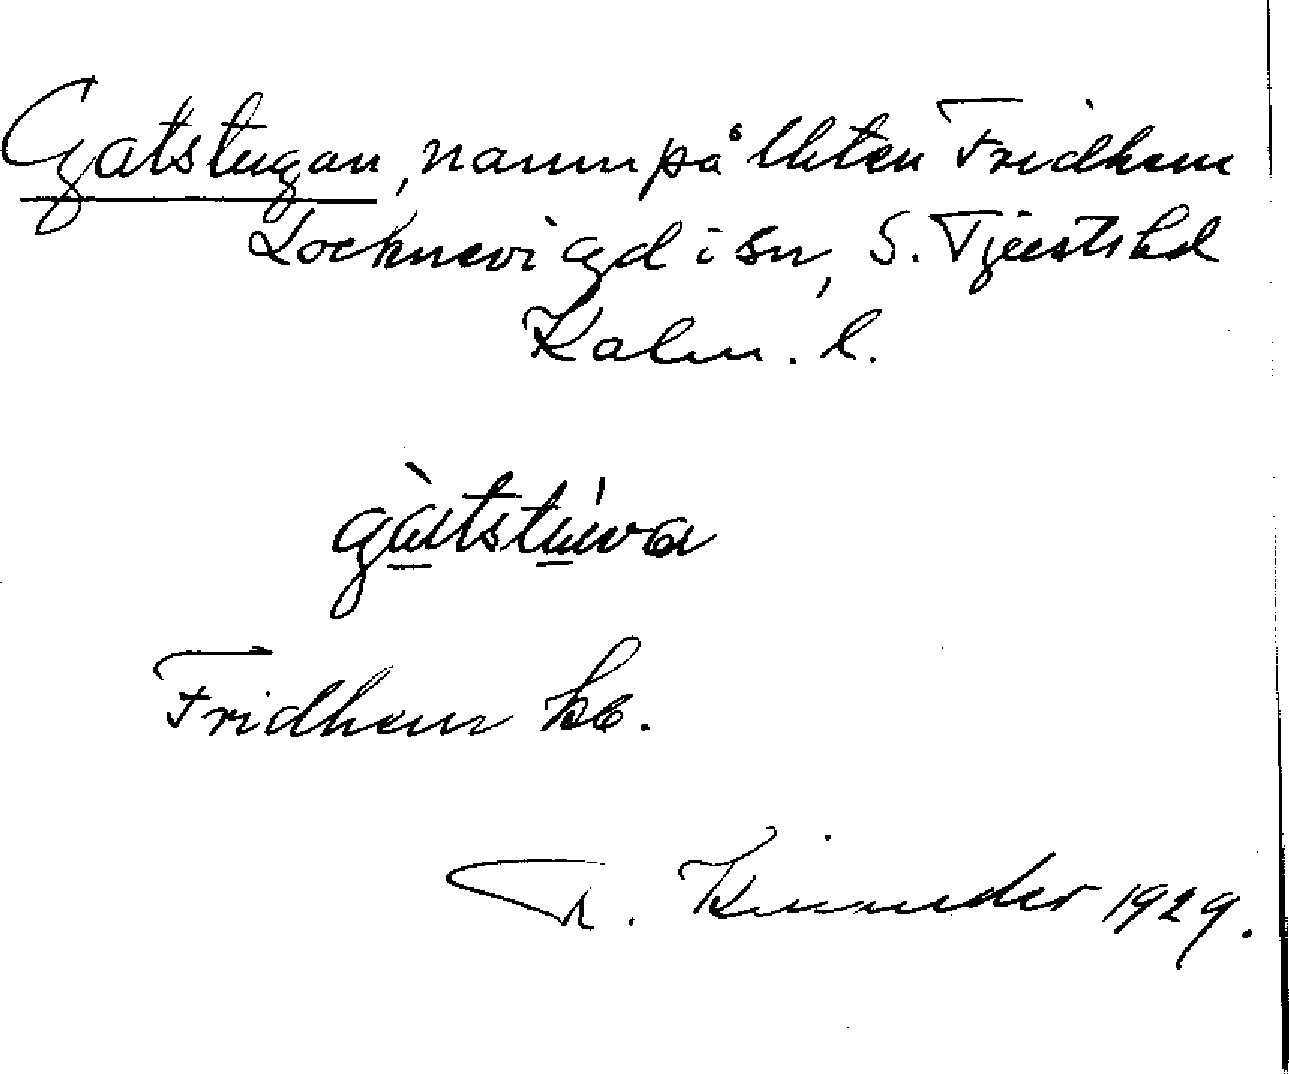 Gatstugan, namn på lhten Fridhem
Locknevi gd i sn, S. Tjusts hd
Kalm. l.
gàtstúva
Fridhem
1929.